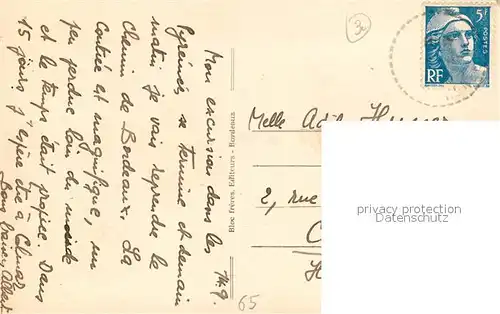 14.9.
Mon excursion dans les
Pyrénées se termine et demain
matin je vais reprendre le
chemin de Bordeaux. La
contrée est magnifique, un
peu perdue loin du monde
et le temps était propice. Dans
15 jours j'espère être à Colmar
Bons baisers Albert
Bloc frères, Editeurs - Bordeaux
30
5F
POSTES
RF
Melle
2, rue
privacy protection
www.ansichtskartenversand.com
65